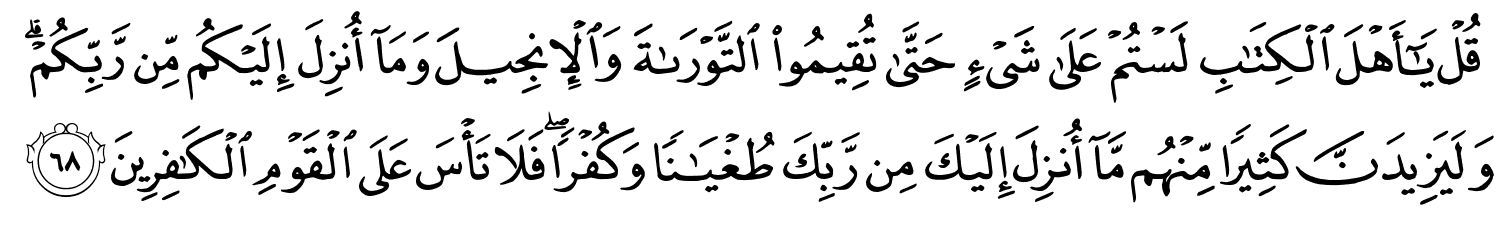 قُلۡ يَـٰٓأَهۡلَ ٱلۡكِتَـٰبِ لَسۡتُمۡ عَلَىٰ شَىۡءٍ حَتَّىٰ تُقِيمُوا۟ ٱلتَّوۡرَىٰةَ وَٱلۡإِنجِيلَ وَمَآ أُنزِلَ إِلَيۡكُم مِّن رَّبِّكُمۡۗ
وَلَيَزِيدَنَّ كَثِيرًا مِّنۡهُم مَّآ أُنزِلَ إِلَيۡكَ مِن رَّبِّكَ طُغۡيَـٰنًا وَكُفۡرًاۖ فَلَا تَأۡسَ عَلَى ٱلۡقَوۡمِ ٱلۡكَـٰفِرِينَ ٦٨